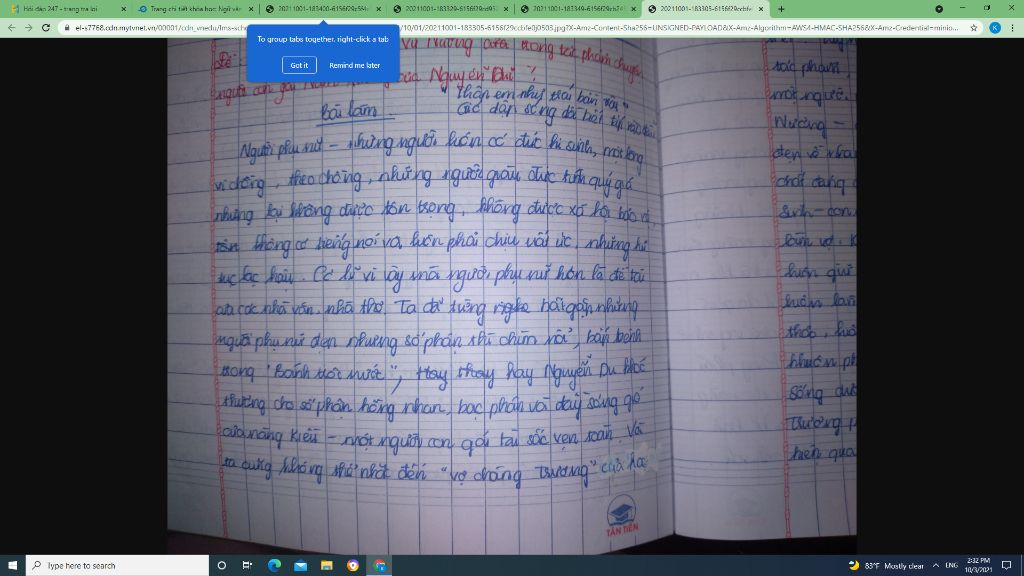 Hỏi đáp 247 - trang tra lời
Trang chi tiết khóa học: Ngữ văn
20211001-183400-6156f29c5f4
20211001-183329-6156f29cd93
20211001-183349-6156f29cb24
20211001-183305-6156f29ccbfe
/10/01/20211001-183305-6156f29ccbfe0j0503.jpg?X-Amz-Content-Sha256=UNSIGNED-PAYLOAD&X-Amz-Algorithm=AWS4-HMAC-SHA256&X-Amz-Credential=minio...
To group tabs together, right-click a tab
Got it
Remind me later
Đề: Vũ Nương trong tác phẩm chuyện
người con gái Nam của Nguyễn Dữ ?
Bài làm
"Thân em như trái bần trôi
Gió dập sóng dồi biết tấp vào đâu"
Người phụ nữ - những người luôn có đức hi sinh, một lòng
vì chồng, theo chồng, những người giàu đức tính quý giá
nhưng lại không được tôn trọng, không được xã hội bảo vệ,
không có tiếng nói và luôn phải chịu uất ức, những hủ
tục lạc hậu. Có lẽ vì vậy mà người phụ nữ luôn là đề tài
của các nhà văn, nhà thơ. Ta đã từng bắt gặp những
người phụ nữ đẹp nhưng số phận thì chìm nổi, bấp bênh
trong "Bánh trôi nước", hay Nguyễn Du khóc
thương cho số phận hồng nhan, bạc phận và đầy sóng gió
của nàng Kiều - một người con gái tài sắc vẹn toàn. Và
ta cũng không thể nhắc đến "vợ chàng Trương" của
TÂN TIẾN
tác phẩm,
một người
Nương -
đẹp về
chất đang
sinh - con
làm vợ,
luôn giữ
luôn
khuôn ph
sống
Trương
hiện qua
Type here to search
83°F Mostly clear
ENG
2:32 PM
10/3/2021